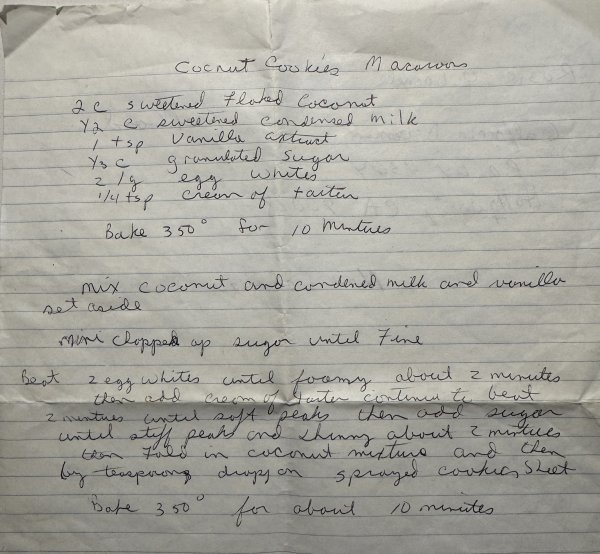 Cocnut Cookies Macaroons
2 c sweetened Flaked Coconut
1/2 c sweetened condensed milk
1 tsp vanilla extract
1/3 c granulated sugar
2 lg egg whites
1/4 tsp cream of tarter
Bake 350° for 10 mintues
mix coconut and condened milk and vanilla
set aside
mini chopped up sugar until Fine
Beat 2 egg whites until foamy about 2 minutes
then add cream of tarter continue to beat
2 mintues until soft peaks then add sugar
until stiff peaks and shinny about 2 mintues
then Fold in coconut mixture and then
by teaspoons drop on sprayed cookies sheet
Bake 350° for about 10 minutes